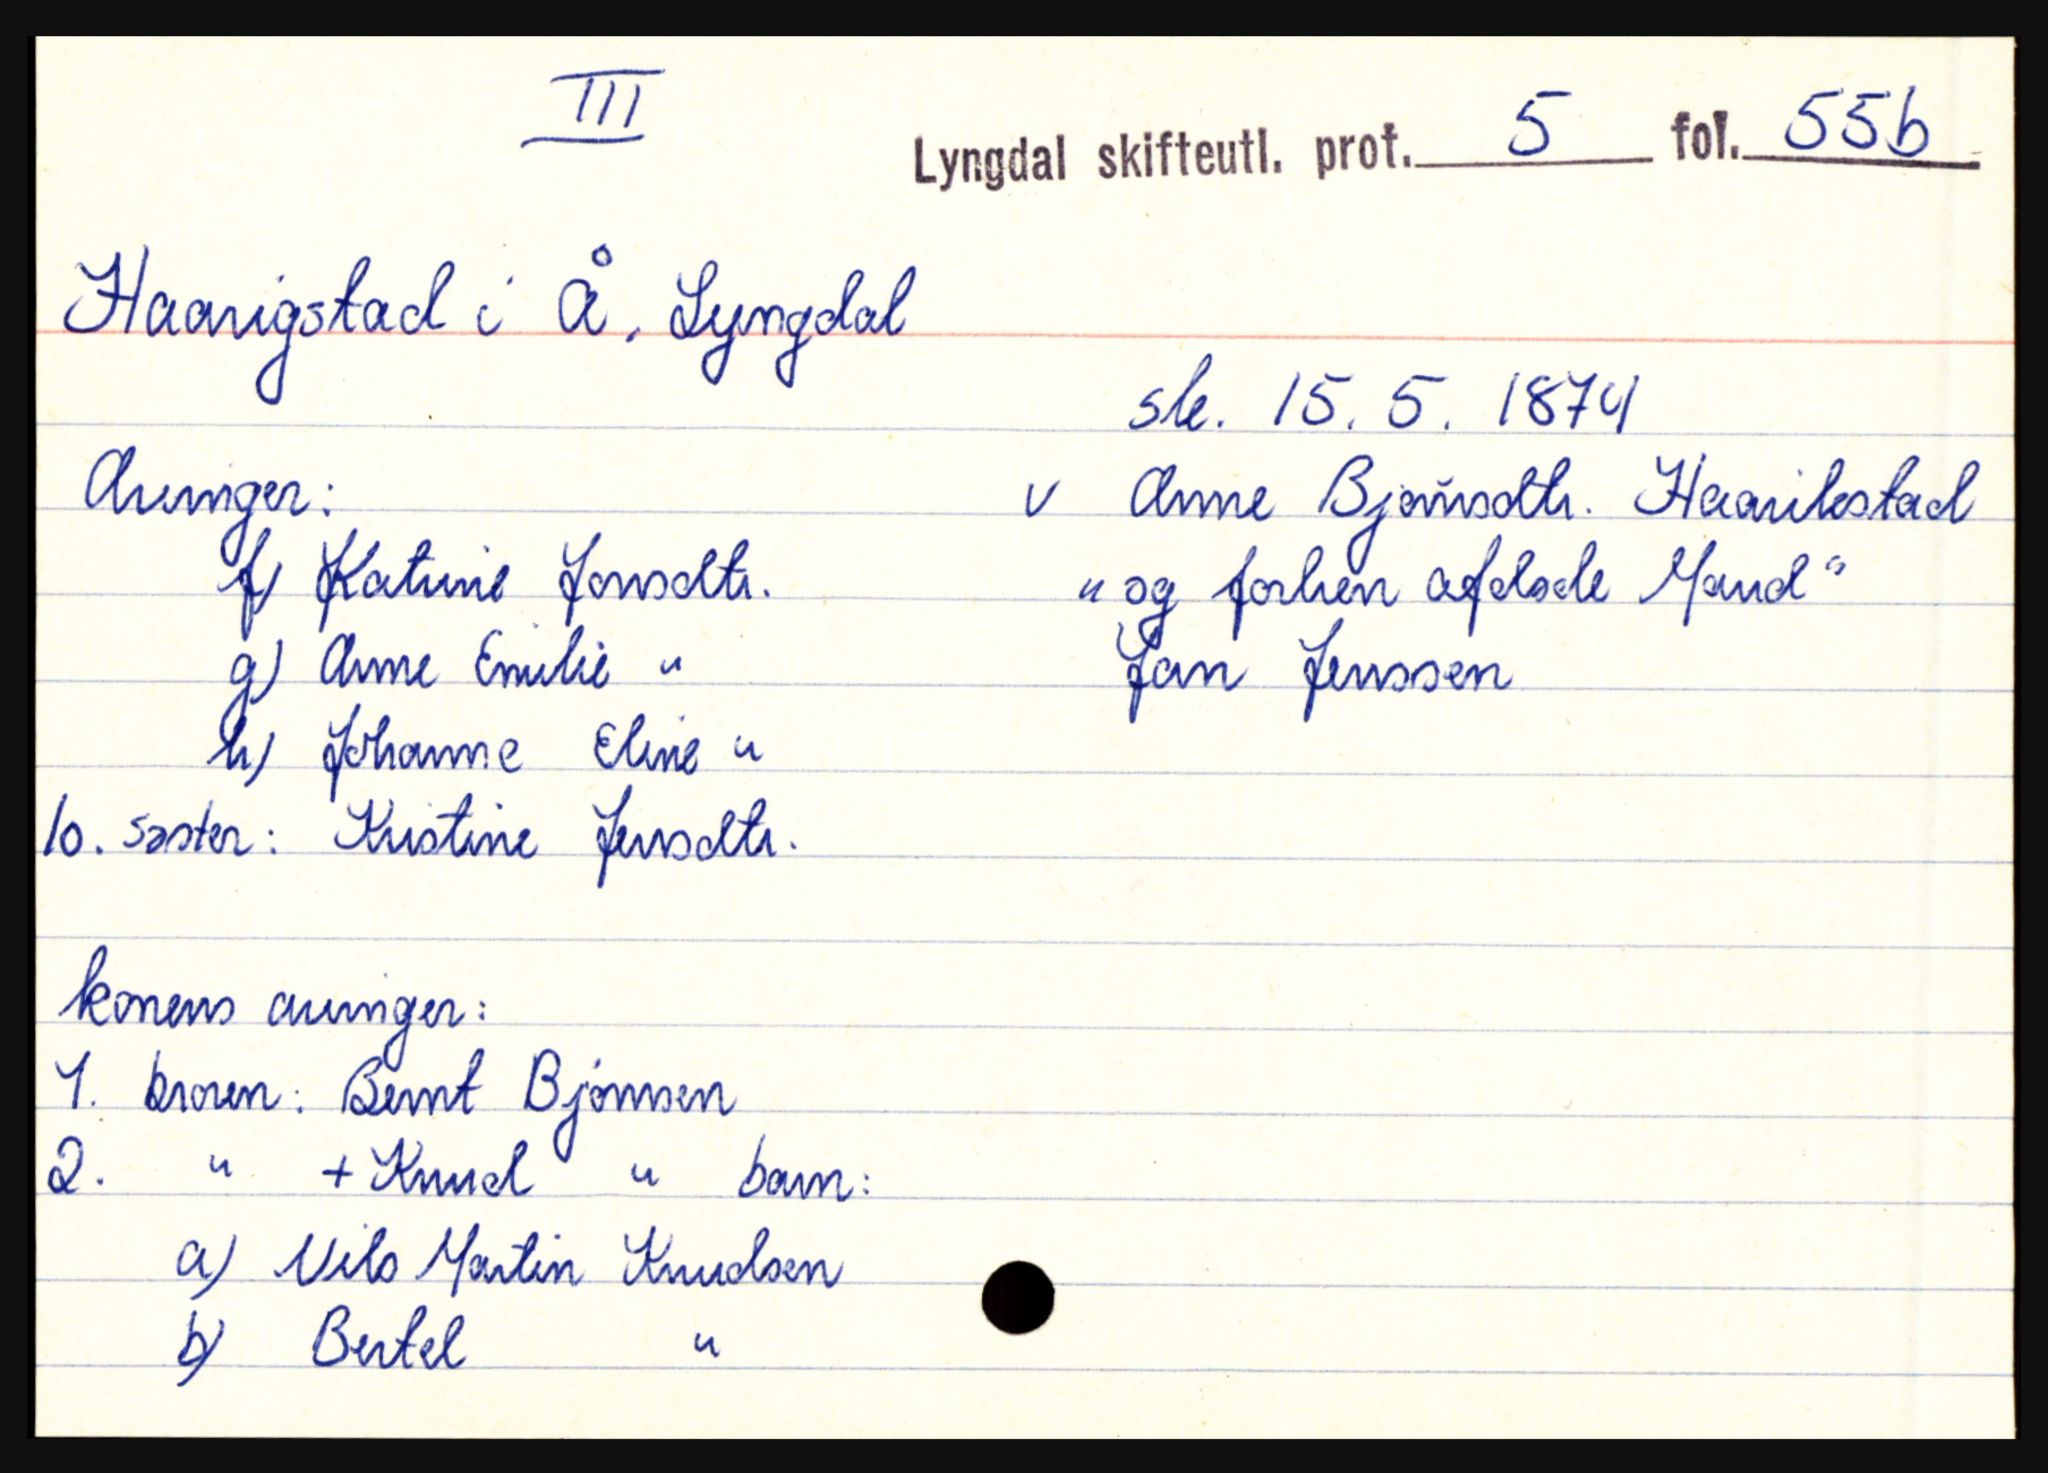 III
Lyngdal skifteutl. prot. 5 fol. 55b
Haarigstad i Å, Lyngdal
sk. 15. 5. 1874
Arvinger:
v Anne Bjørnsdtr. Haarikstad
f) Katrine Jonsdtr.
"og forhen afdøde Mand"
g) Anne Emilie "
Jan Jenssen
h) Johanne Eline "
10. søster: Kristine Jensdtr.
konens arvinger:
1. broren: Bernt Bjørnsen
2. " + Knud " barn:
a) Nils Martin Knudsen
b) Bertel "